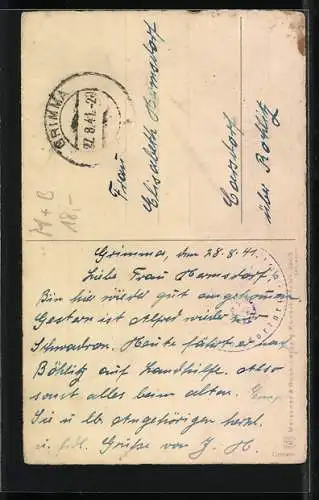 GRIMMA
27.8.41.-20
M + B
18,-
Frau
Elisabeth Ramsdorf
Carsdorf
über Rochlitz
Grimma, den 28.8.41.
Liebe Frau Ramsdorf,
Bin hier wieder gut angekommen.
Gestern ist Alfred wieder zur
Schwadron. Heute fährt er nach
Böhlitz auf Landhilfe. Also
sonst alles beim alten.
Sie u. lb. Angehörigen herzl.
u. frdl. Grüsse von J. H.